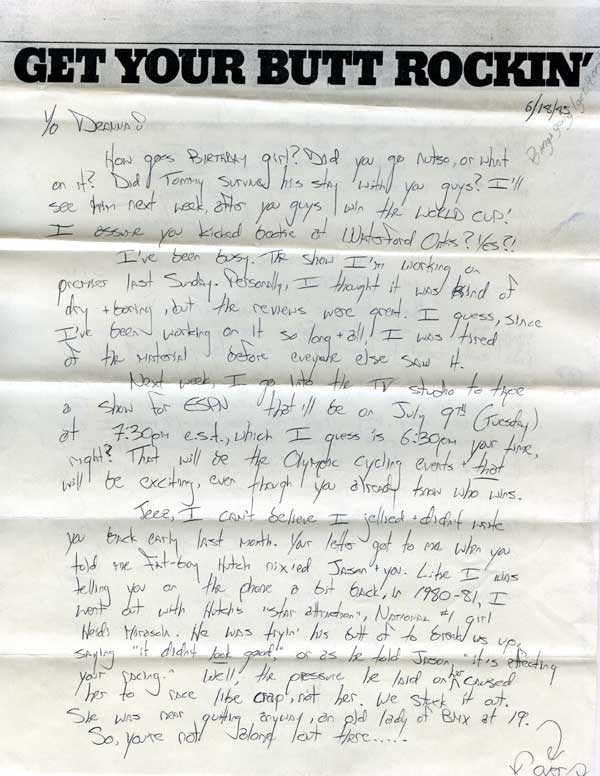 GET YOUR BUTT ROCKIN'
6/18/85
Yo DEANNA!
How goes BIRTHDAY girl? Did you go nutso, or what
on it? Did Tommy survive his stay with you guys? I'll
see him next week, after you guys win the WORLD CUP!
I assure you kicked bootie at Waterford Oaks? Yes?!
I've been busy. The show I'm working on
premier last Sunday. Personally, I thought it was kind of
dry + boring, but the reviews were great. I guess, since
I've been working on it so long + all, I was tired
of the material before everyone else saw it.
Next week, I go into the TV studio to tape
a show for ESPN that'll be on July 9th (Tuesday)
at 7:30pm e.s.t., which I guess is 6:30pm your time,
right? That will be the Olympic cycling events + that
will be exciting, even though you already know who wins.
Jeez, I can't believe I jellied + didn't write
you back early last month. Your letter got to me when you
told me fat-boy Hutch nix'ed Jason + you. Like I was
telling you on the phone a bit back, in 1980-81, I
went out with Hutch's "star attraction", National #1 girl
Heidi Mirasola. He was tryin' his butt of to break us up,
saying "it didn't look good," or as he told Jason, "it is effecting
your racing." Well! the pressure he laid on her caused
her to race like crap, not her. We stuck it out.
She was near quitting anyway, an old lady of BMX at 19.
So, you're not alone out there.....
over